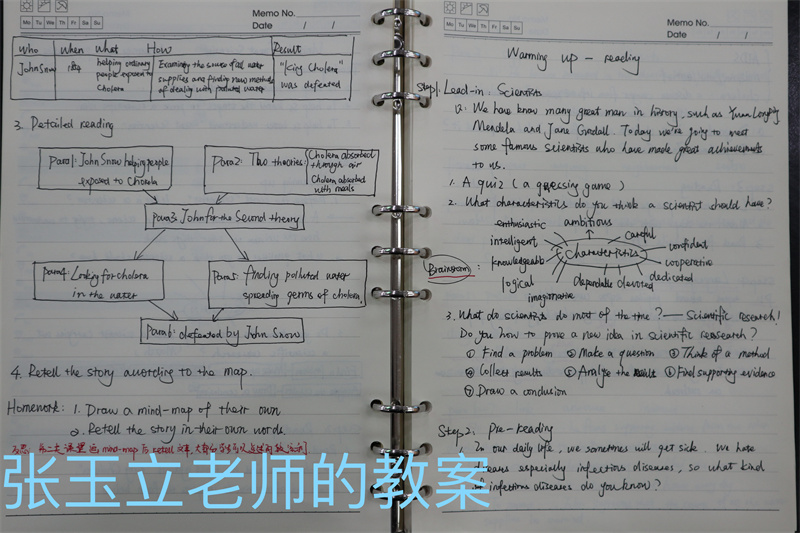 Memo No.
Mo Tu We Th Fr Sa Su
Date / /
Who When What How Result
John Snow helping ordinary people exposed to Cholera Examining the source of all water supplies and finding new methods of dealing with polluted water "King Cholera" was defeated
3. Detailed reading
Para1: John Snow helping people exposed to Cholera
Para2: Two theories: Cholera absorbed through air
Cholera absorbed with meals
Para3: John for the Second theory
Para4: Looking for cholera in the water
Para5: finding polluted water spreading germs of cholera.
Para6: defeated by John Snow
4. Retell the story according to the map.
Homework: 1. Draw a mind-map of their own
2. Retell the story in their own words.
mind-map retell
张玉立老师的教案
Memo No.
Mo Tu We Th Fr Sa Su
Date / /
Warming up - reading
Step1. Lead-in: Scientists
We have know many great man in history, such as Yuan Longping
Mendela and Jane Goodall. Today we're going to meet
some famous scientists who have made great achievements
to us.
1. A quiz (a guessing game)
2. What characteristics do you think a scientist should have?
Brainstorm:
enthusiastic
ambitious
careful
intelligent
characteristics
confident
knowledgeable
cooperative
logical
dependable
devoted
dedicated
imaginative
3. What do scientists do most of the time? — Scientific research!
Do you how to prove a new idea in scientific reasearch?
① Find a problem ② Make a question ③ Think of a method
④ Collect results ⑤ Analyse the result ⑥ Find supporting evidence
⑦ Draw a conclusion
Step2. Pre-reading
In our daily life, we sometimes will get sick. We have
especially infectious diseases, so what kind
of infectious diseases do you know?